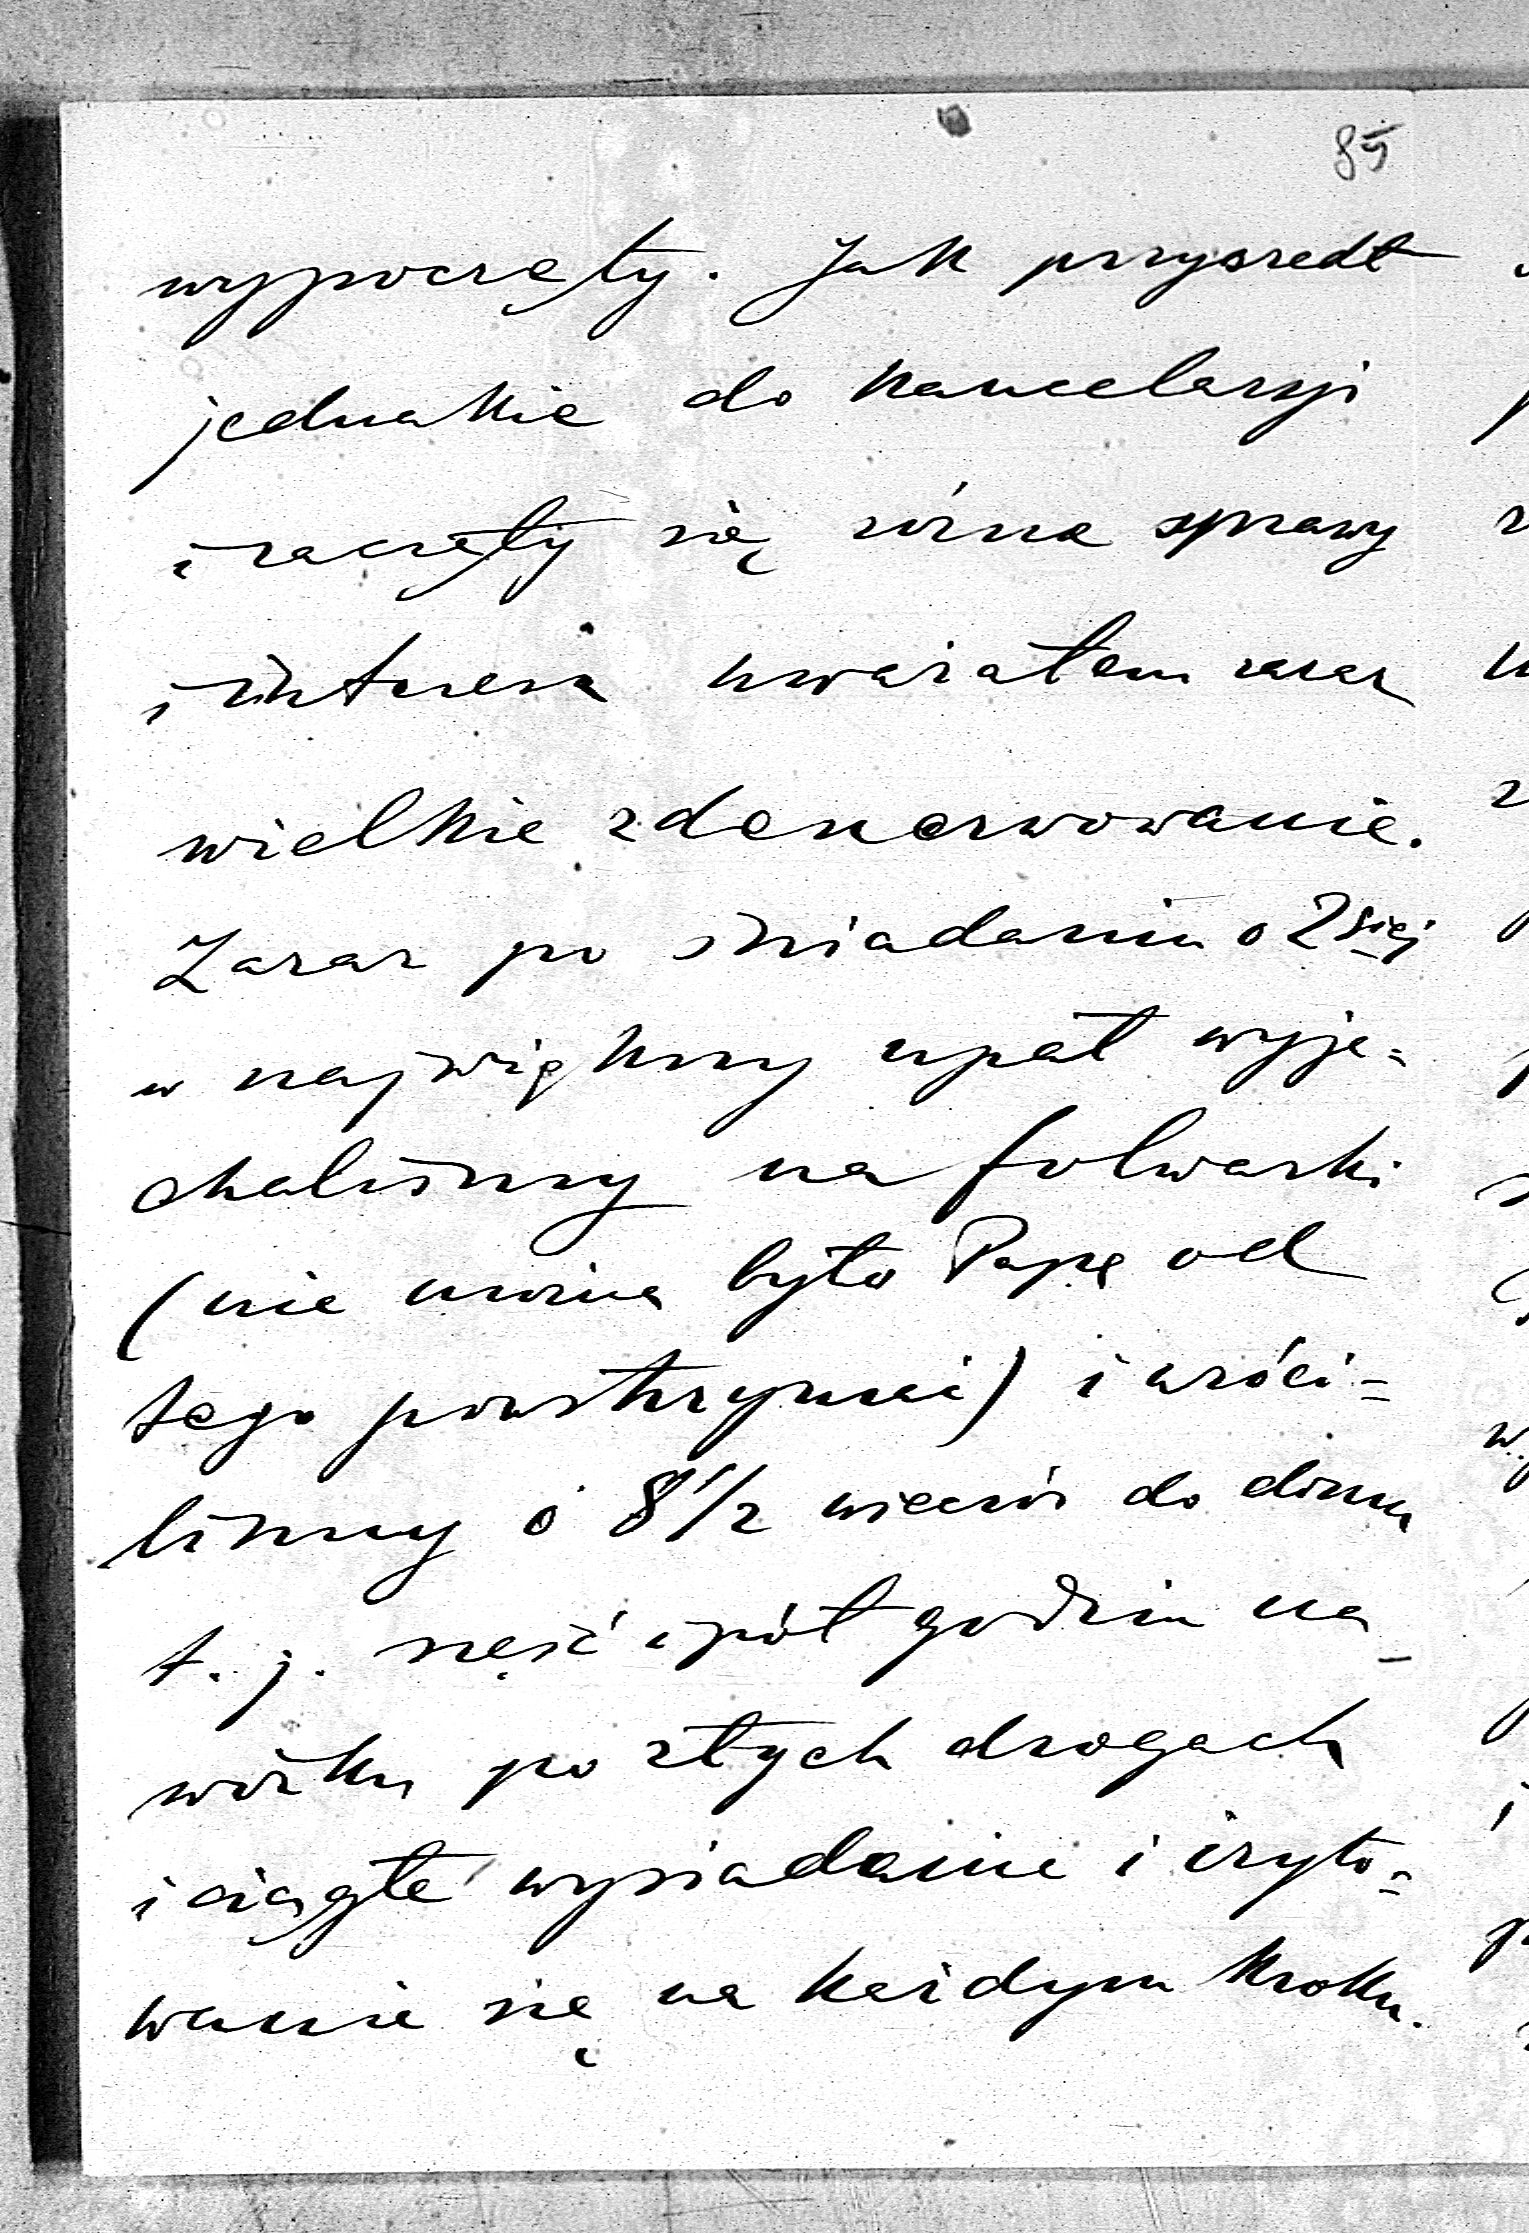 85
wypoczęty. Jak przyszedł
jednakże do kancelaryi
i zaczęły się różne sprawy
i interesa uważałem zaraz
wielkie zdenerwowanie.
Zaraz po śniadaniu o 2giej
w największy upał wyje=
chaliśmy na folwarki
(nie można było Papę od
tego powstrzymać) i wróci=
liśmy o 8 1/2 wieczór do domu
t. j. sześć i pół godzin na
wózku po złych drogach
i ciągłe wysiadanie i iryto=
wanie się na każdym kroku.